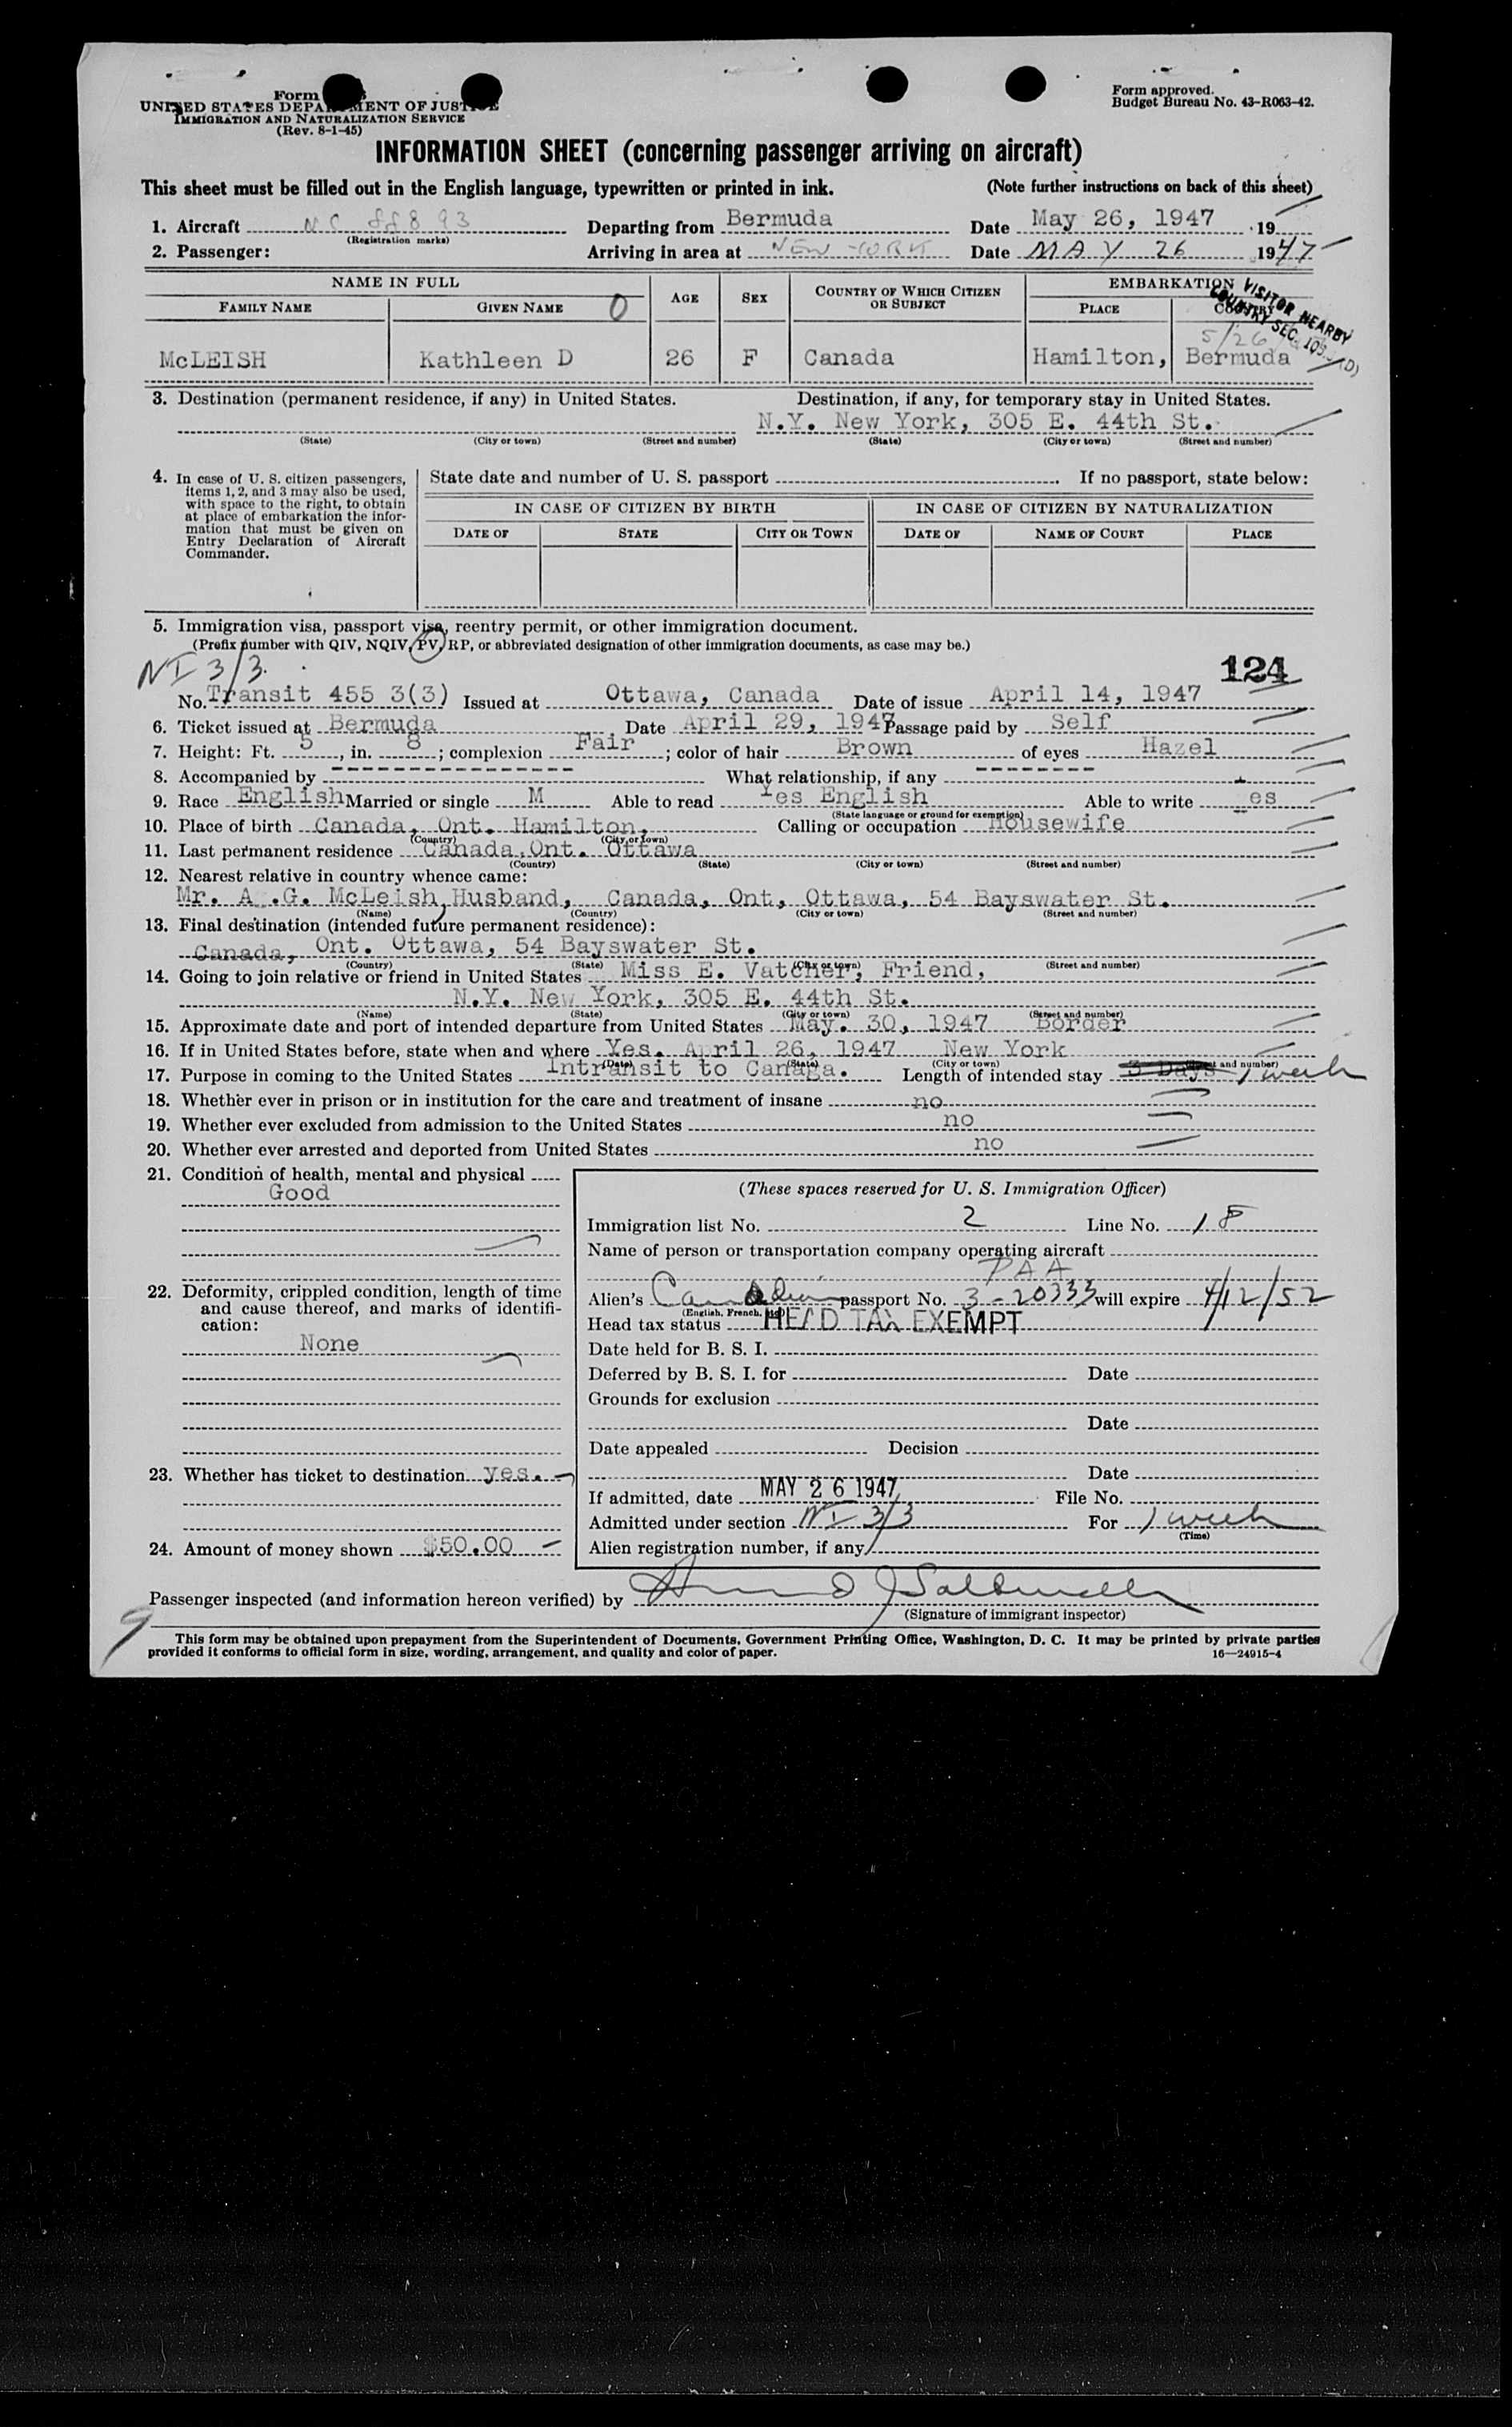 Form
UNITED STATES DEPARTMENT OF JUSTICE
IMMIGRATION AND NATURALIZATION SERVICE
(Rev. 8-1-45)
Form approved.
Budget Bureau No. 43-R063-42.
INFORMATION SHEET (concerning passenger arriving on aircraft)
This sheet must be filled out in the English language, typewritten or printed in ink. (Note further instructions on back of this sheet)
1. Aircraft NC 88893 Departing from Bermuda Date May 26, 1947 19
(Registration marks)
2. Passenger: Arriving in area at NEW YORK Date MAY 26 1947
NAME IN FULL AGE SEX COUNTRY OF WHICH CITIZEN OR SUBJECT EMBARKATION
FAMILY NAME GIVEN NAME PLACE COUNTRY
VISITOR NEARBY
COUNTRY SEC.
5/26
McLEISH Kathleen D 26 F Canada Hamilton, Bermuda
3. Destination (permanent residence, if any) in United States. Destination, if any, for temporary stay in United States.
N.Y. New York, 305 E. 44th St.
(State) (City or town) (Street and number) (State) (City or town) (Street and number)
4. In case of U. S. citizen passengers, items 1, 2, and 3 may also be used, with space to the right, to obtain at place of embarkation the information that must be given on Entry Declaration of Aircraft Commander.
State date and number of U. S. passport If no passport, state below:
IN CASE OF CITIZEN BY BIRTH IN CASE OF CITIZEN BY NATURALIZATION
DATE OF STATE CITY OR TOWN DATE OF NAME OF COURT PLACE
5. Immigration visa, passport visa, reentry permit, or other immigration document.
(Prefix number with QIV, NQIV, PV, RP, or abbreviated designation of other immigration documents, as case may be.)
NI 3/3 124
No. Transit 455 3(3) Issued at Ottawa, Canada Date of issue April 14, 1947
6. Ticket issued at Bermuda Date April 29, 1947 Passage paid by Self
7. Height: Ft. 5, in. 8; complexion Fair; color of hair Brown of eyes Hazel
8. Accompanied by What relationship, if any
9. Race English Married or single M Able to read Yes English Able to write es
(State language or ground for exemption)
10. Place of birth Canada, Ont. Hamilton, Calling or occupation Housewife
(Country) (City or town)
11. Last permanent residence Canada, Ont. Ottawa
(Country) (State) (City or town) (Street and number)
12. Nearest relative in country whence came:
Mr. A .G. McLeish, Husband, Canada, Ont, Ottawa, 54 Bayswater St.
(Name) (Country) (City or town) (Street and number)
13. Final destination (intended future permanent residence):
Canada, Ont. Ottawa, 54 Bayswater St.
(Country) (State) (City or town) (Street and number)
14. Going to join relative or friend in United States Miss E. Vatcher, Friend,
N.Y. New York, 305 E. 44th St.
(Name) (State) (City or town) (Street and number)
15. Approximate date and port of intended departure from United States May. 30, 1947 Border
16. If in United States before, state when and where Yes. April 26, 1947 New York
(Date) (State) (City or town) (Street and number)
17. Purpose in coming to the United States Intransit to Canada. Length of intended stay 3 Days 1 week
18. Whether ever in prison or in institution for the care and treatment of insane no
19. Whether ever excluded from admission to the United States no
20. Whether ever arrested and deported from United States no
21. Condition of health, mental and physical
Good
22. Deformity, crippled condition, length of time and cause thereof, and marks of identification:
None
23. Whether has ticket to destination yes.
24. Amount of money shown $50.00
(These spaces reserved for U. S. Immigration Officer)
Immigration list No. 2 Line No. 18
Name of person or transportation company operating aircraft
PAA
Alien's Canadian passport No. 3-20333 will expire 4/12/52
(English, French, etc.)
Head tax status HEAD TAX EXEMPT
Date held for B. S. I.
Deferred by B. S. I. for Date
Grounds for exclusion
Date
Date appealed Decision
Date
If admitted, date MAY 26 1947 File No.
Admitted under section NI 3/3 For 1 week
(Time)
Alien registration number, if any
Passenger inspected (and information hereon verified) by
(Signature of immigrant inspector)
This form may be obtained upon prepayment from the Superintendent of Documents, Government Printing Office, Washington, D. C. It may be printed by private parties
provided it conforms to official form in size, wording, arrangement, and quality and color of paper. 16—24915-4